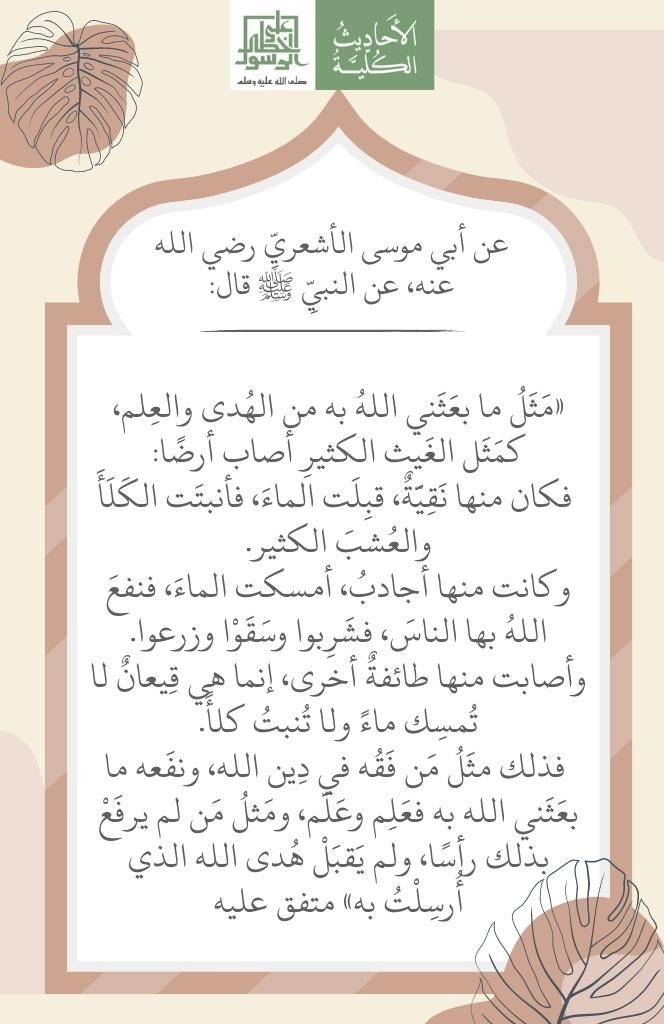 الأَحَادِيثُ
الكُلِّيَّةُ
على
خطى
الرسول
صلى الله عليه وسلم
عن أبي موسى الأشعريّ رضي الله
عنه، عن النبيِّ ﷺ قال:
«مَثَلُ ما بعَثَني اللهُ به من الهُدى والعِلم،
كمَثَل الغَيث الكثيرِ أصاب أرضًا:
فكان منها نَقِيّةٌ، قبِلَت الماءَ، فأنبتَت الكَلَأَ
والعُشبَ الكثير.
وكانت منها أجادبُ، أمسكت الماءَ، فنفعَ
اللهُ بها الناسَ، فشَرِبوا وسَقَوْا وزرعوا.
وأصابت منها طائفةٌ أخرى، إنما هي قِيعانٌ لا
تُمسِك ماءً ولا تُنبتُ كلأً.
فذلك مثَلُ مَن فَقُه في دِين الله، ونفَعه ما
بعَثَني الله به فعَلِم وعَلَّم، ومَثلُ مَن لم يرفَعْ
بذلك رأسًا، ولم يَقبَلْ هُدى الله الذي
أُرسِلْتُ به» متفق عليه